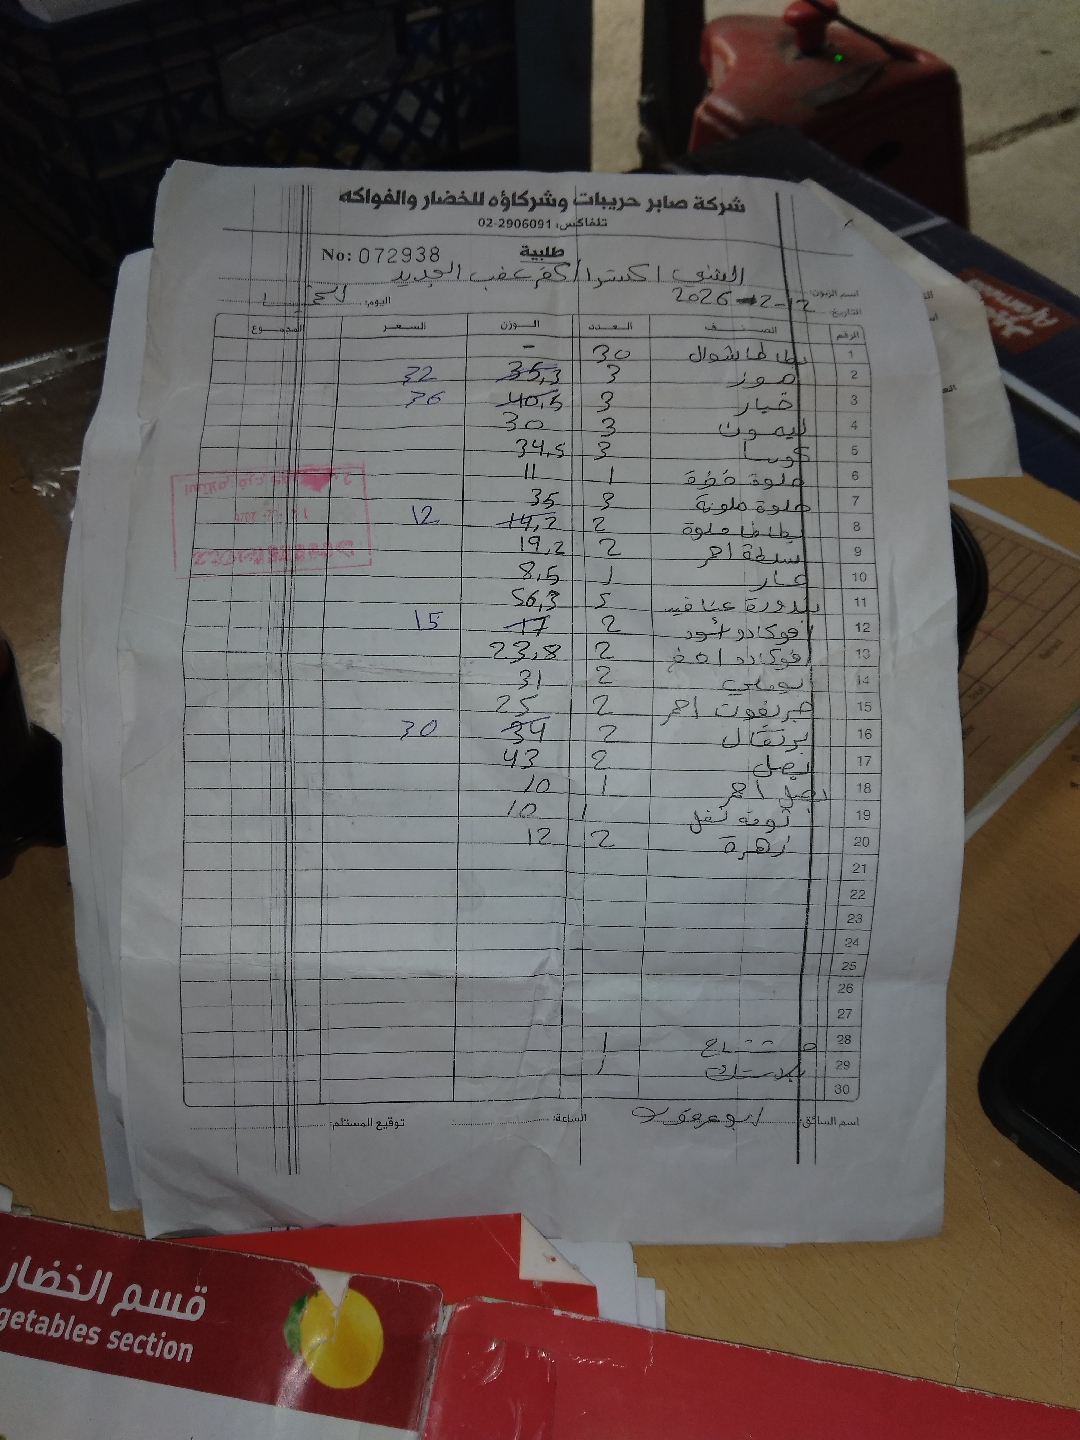 شركة صابر حريبات وشركاؤه للخضار والفواكه
تلفاكس: 02-2906091
طلبية
No: 072938
اسم الزبون: الشني اكسترا / كفر عقب الجديد
التاريخ: 2026-2-12 اليوم:
الرقم الصنف العدد الوزن السعر المجموع
1 بطاطا شوال 30 -
2 موز 3 35,3 32
3 خيار 3 40,5 36
4 ليمون 3 30
5 كوسا 3 34,5
6 حلوة خضرة 1 11
7 حلوة ملونة 3 35
8 بطاطا حلوة 2 14,2 12
9 بسطة احمر 2 19,2
10 خيار 1 8,5
11 بندورة عناقيد 5 56,3
12 افوكادو أسود 2 17 15
13 افوكادو اخضر 2 23,8
14 بوملي 2 31
15 جريفوت احمر 2 25
16 برتقال 2 34 30
17 بصل 2 43
18 بصل احمر 1 10
19 ثومة تفل 1 10
20 زهرة 2 12
21
22
23
24
25
26
27
28 مشتاح 1
29 بلاستك 1
30
اسم السائق: الساعة: توقيع المستلم:
قسم الخضار
getables section